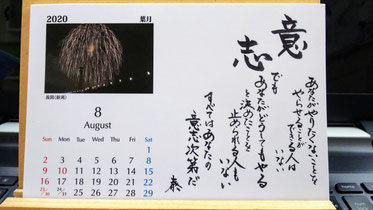 2020
葉月
長岡(新潟)
8
August
SUN MON TUE WED THU FRI SAT
1
2 3 4 5 6 7 8
9 10 11 12 13 14 15
16 17 18 19 20 21 22
23/30 24/31 25 26 27 28 29
意志
あなたがやりたくないことを
やらせることができる人は
いない
でも
あなたがどうしてもやる
と決めたことを
止められる人も
いない
すべてはあなたの
意志次第だ
泰